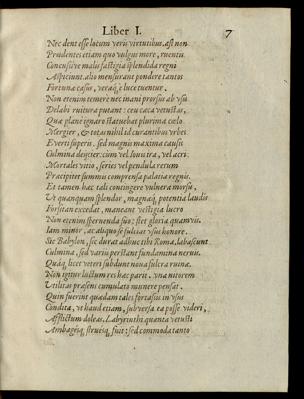 Liber I. 7
Nec dent esse locum veris virtutibus. ast non
Prudentes etiam quo vulgus more, ruentia
Concussive malis fastigia splendida regni
Aspiciunt. alio mensurant pondere tantos
Fortunæ casus, veraq́; e luce tuentur.
Non etenim temere nec inani prorsus ab usu
Delabi ruitura putant: ceu cæca vetustas,
Quæ plane ignaro statuebat plurima cælo
Mergier, & totas nihil id curantibus vrbes
Everti superis. sed magnis maxima causis
Culmina deijcier: cum vel Iouis ira, vel acri
Mortales vitio, series vel pendula rerum
Præcipitet summis compressa palatia regnis.
Et tamen hæc tali contingere vulnera morsu,
Vt quanquam splendor, magnaq́; potentia laudis
Forsitan excedat, maneant vestigia lucro
Non etenim spernenda suo: stet gloria quamvis
Iam minor, ac aliquo se fulciat vsus honore.
Sic Babylon, sic durat adhuc tibi Roma, labascunt
Culmina, sed varijs perstant fundamina nervis.
Quaq́; licet veteri subdunt nova fulcra ruinæ.
Non igitur luctum res hæc parit. vna nitorem
Vtilitas præsens cumulato munere pensat.
Quin fuerint quædam tales fortassis in vsus
Condita, vt haud etiam, subversa ea posse videri,
Afflictum doleas. Labyrinthi quanta vetusti
Ambagésq́, struésq́, fuit: sed commoda tanto